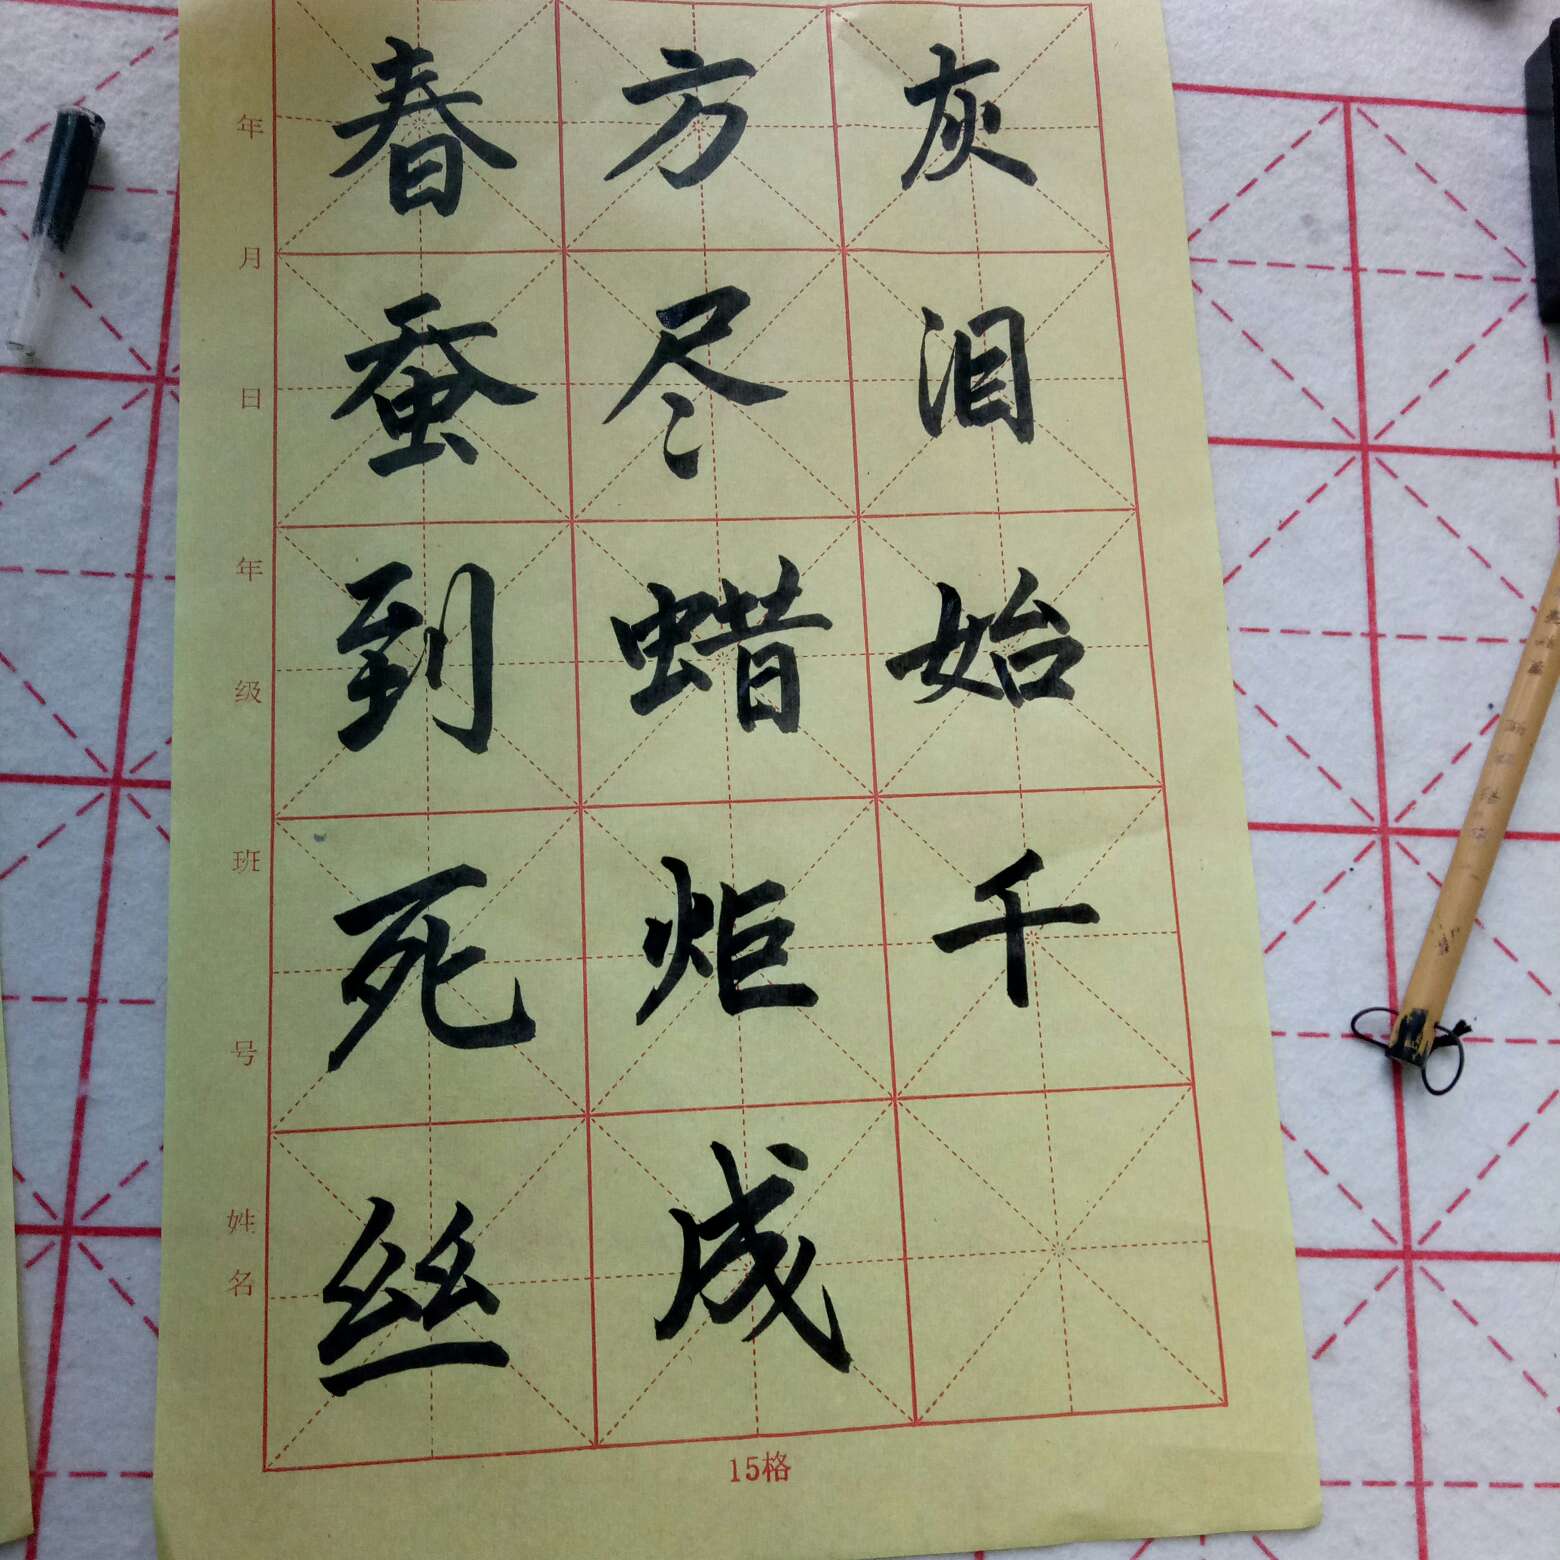 春蚕到死丝
方尽蜡炬成
灰泪始千
年 月 日 年 级 班 号 姓 名
15格